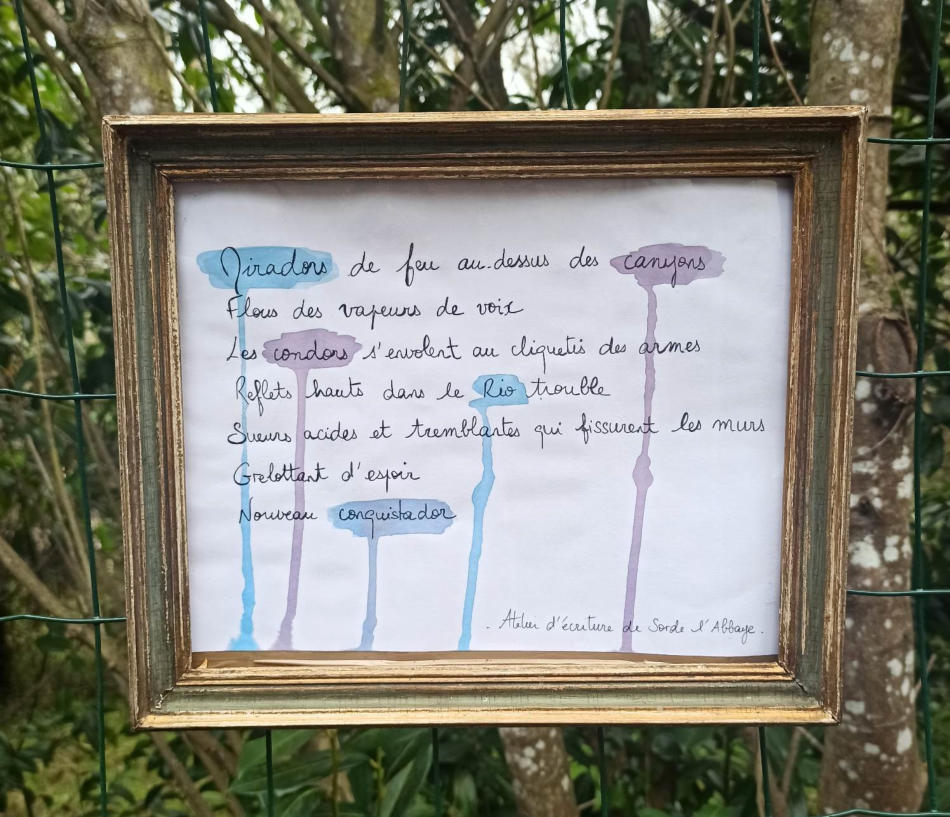 Miradors de feu au-dessus des canyons
Flous des vapeurs de voix
Les condors s'envolent au cliquetis des armes
Reflets hauts dans le Rio trouble
Sueurs acides et tremblantes qui fissurent les murs
Grelottant d'espoir
Nouveau conquistador
. Atelier d'écriture de Sorde l'Abbaye.